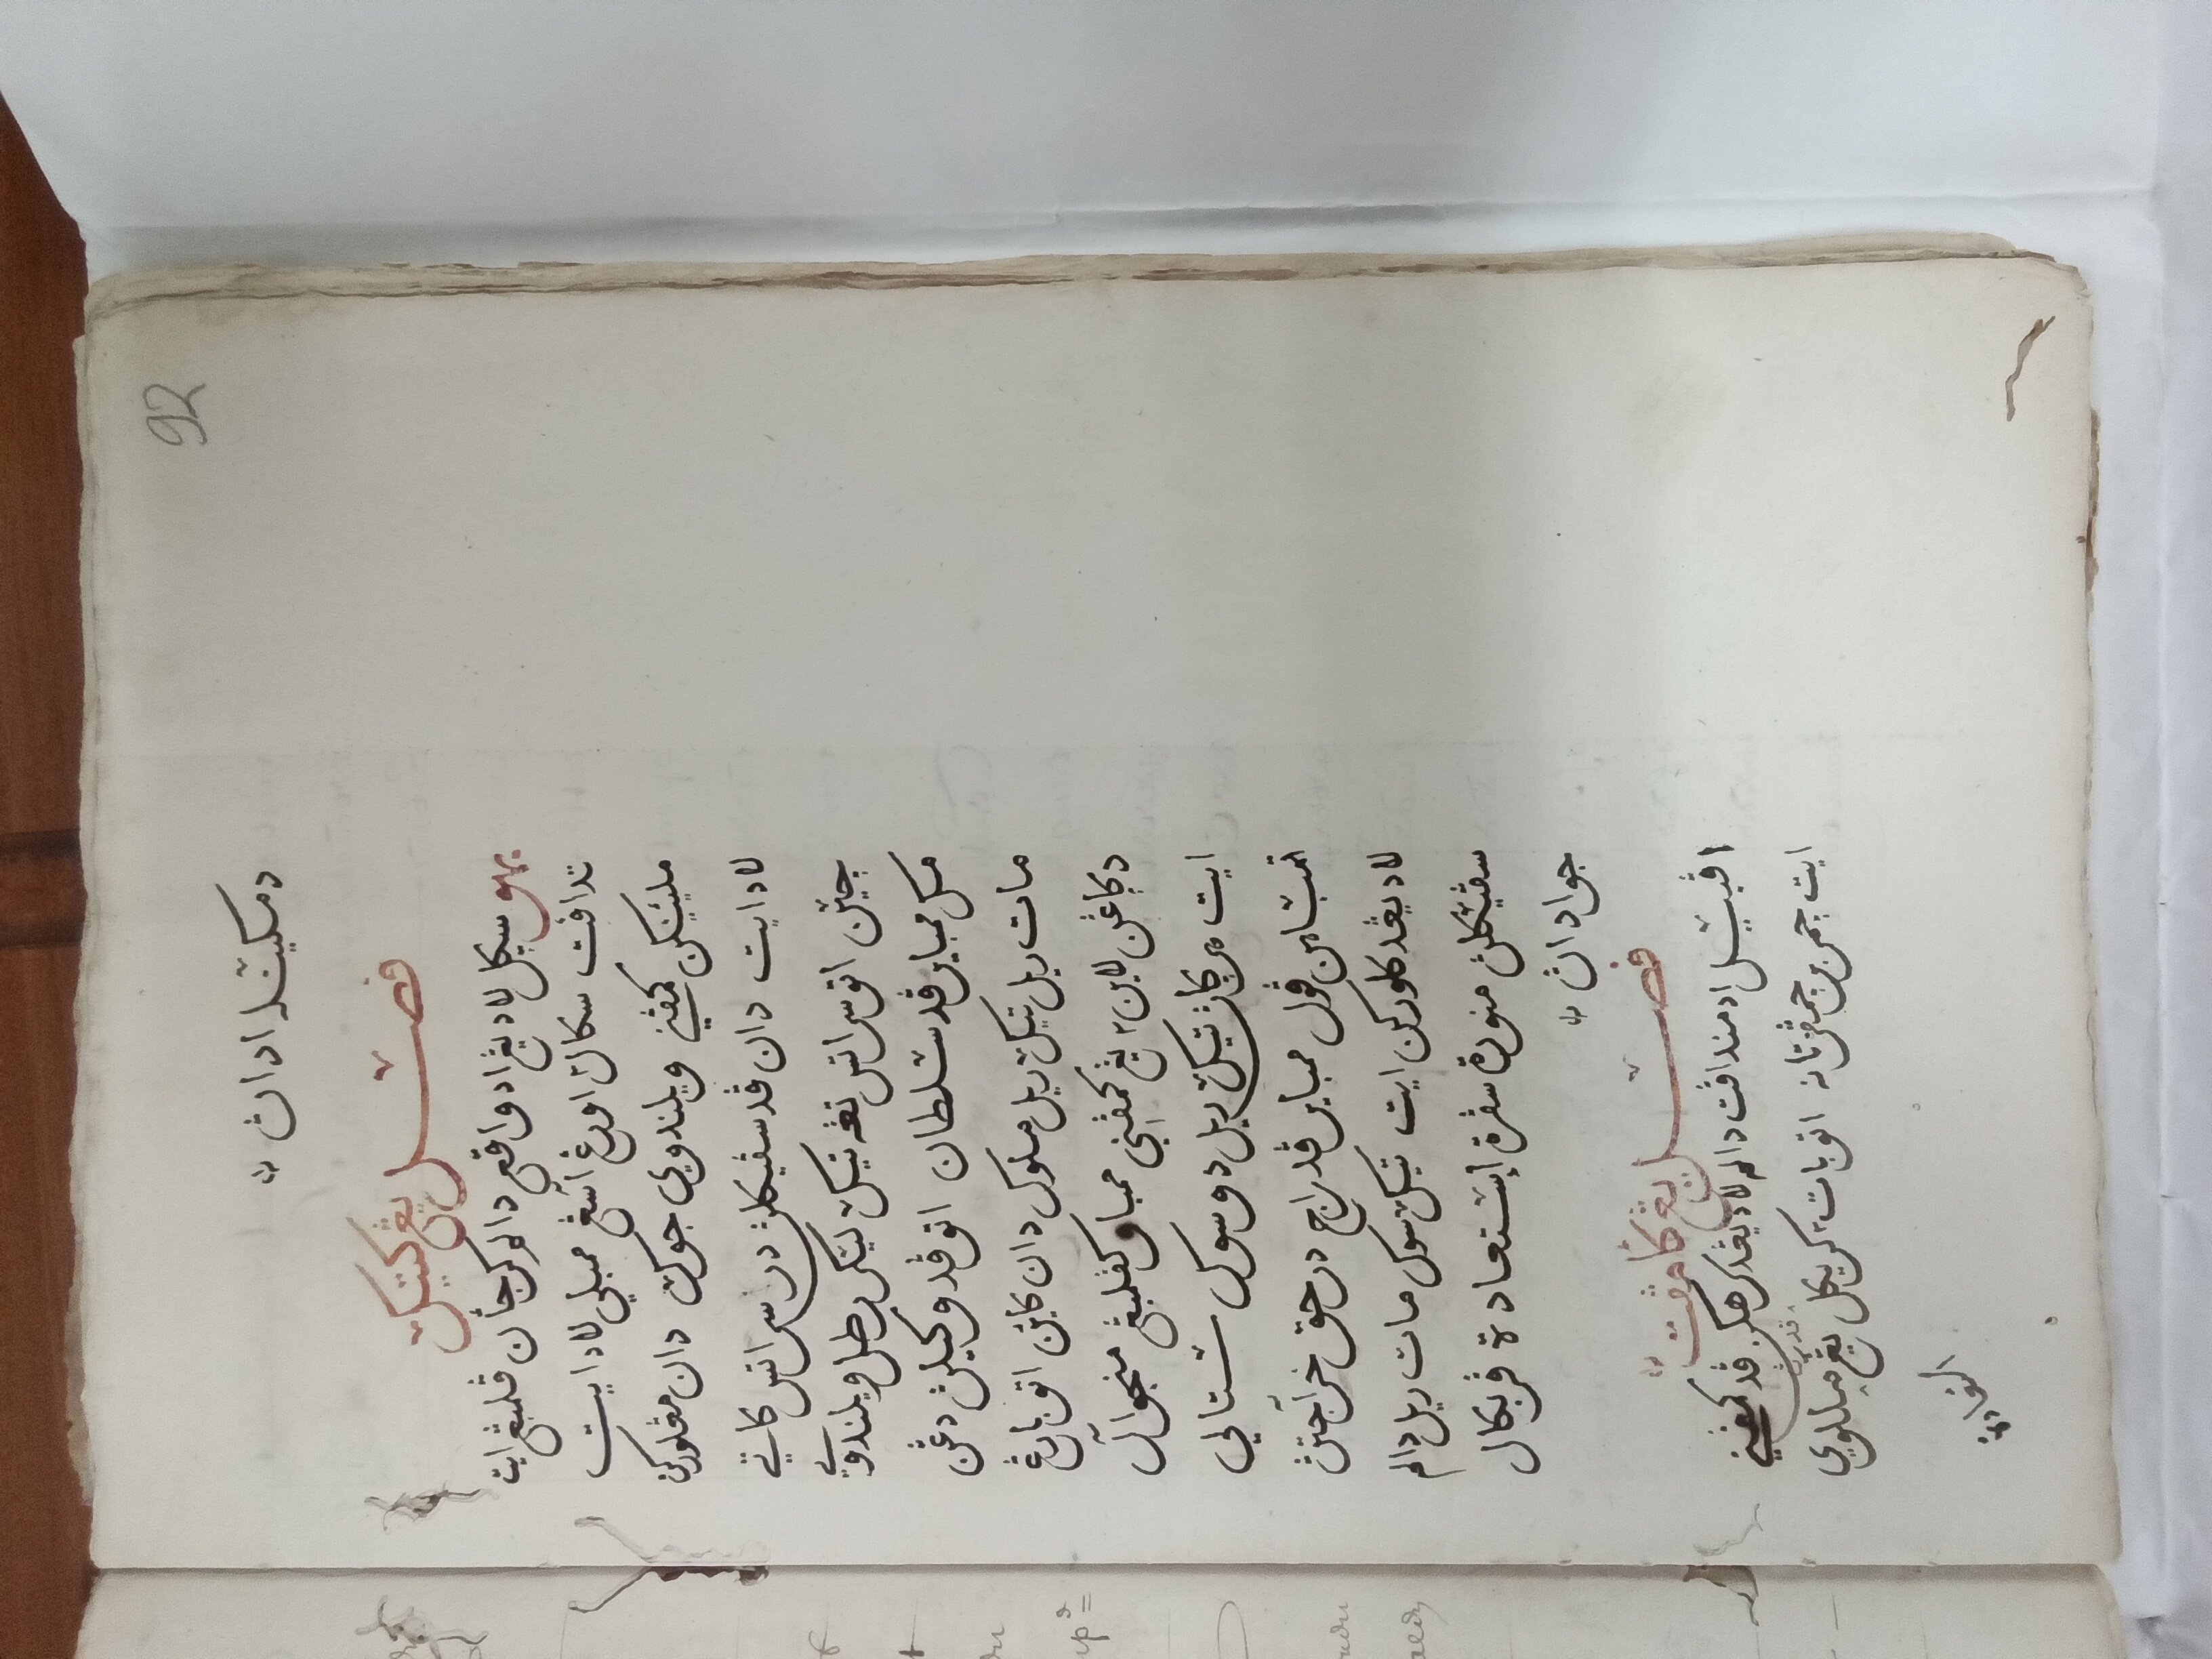 92
دمكينله اداڽ
فصل يڠ كتيݢ
بهو سݢل لاد يڠ اد واقع دالم كرجأن ڤلمبڠ ايت
تدافت سكالي٢ اورڠ آسڠ ممبلي لاد ايت
مليينكن كمڤني ويلندوي جوݢ دان مڠلوركن
لاد ايت دان ڤد سڤيكلڽ در سراتس كاتي
چين اتو سراتس تڠه تيݢ ليكر رطل ويلندوي
مك ممباير ڤد سلطان اتو ڤد وكيلڽ دڠن
مات ريل تيݢ ريل ملوكى دان كاين اتو بارڠ
دݢاڠن لاين٢ يڠ كمڤني ممباو كڤلمبڠ منجوال
ايت هرݢاڽ تيݢ ريل دو سوك ستالي
تمباهن ڤول ممباير ڤد راج در حق خراجتڽ
لاد يڠ دكلوركن ايت تيݢ سوك مات ريل دالم
سڤيكلڽ منورة سڤرة إستعادة ڤربكال
جوا داڽ
فصل يڠ كأمڤت
اڤبيل اد مندافت دالم لاد يڠ دكرهكن ڤد كمڤني
ايت چمر برچمڤر تانه اتو بات٢ كريكل يڠ ملالوي
قدرڽ
استعادة